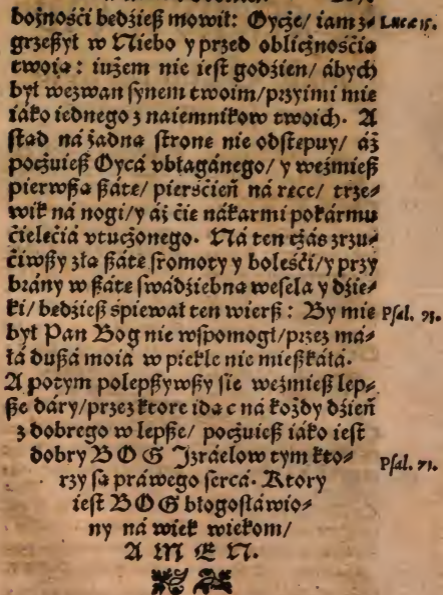 bożnośći bedźieß mowił: Oycże/ iam z⸗ Lucæ 15.
grzeßył w Niebo y przed oblicżnośćią
twoią: iużem nie iest godźien/ ábych
był wezwan synem twoim/ przyimi mie
iáko iednego z naiemnikow twoich. A
stąd ná żadną stronę nie odstępuy/ áż
pocżuieß Oycá vbłagánego/ y weźmieß
pierwßą ßátę/ pierśćień ná rękę/ trze⸗
wik ná nogi/ y áż ćie nákarmi pokármu
ćielęćiá vtucżonego. Ná ten cżás zrzu⸗
ćiwßy złą ßátę sromoty y boleśći/ y przy
brány w ßátę swádźiebną wesela y dźię⸗
ki/ bedźieß śpiewał ten wierß: By mie Psal. 93.
był Pan Bog nie wspomogł/ przez má⸗
łá dußá moiá w piekle nie mießkáłá.
A potym polepßywßy się weźmieß lep⸗
ße dáry/ przez ktore idąc ná kożdy dźień
z dobrego w lepße/ pocżuieß iáko iest
dobry BOG Jzráelow tym kto⸗
rzy są práwego sercá. Ktory Psal. 71.
iest BOG błogosłáwio⸗
ny ná wiek wiekom/
AMEN.